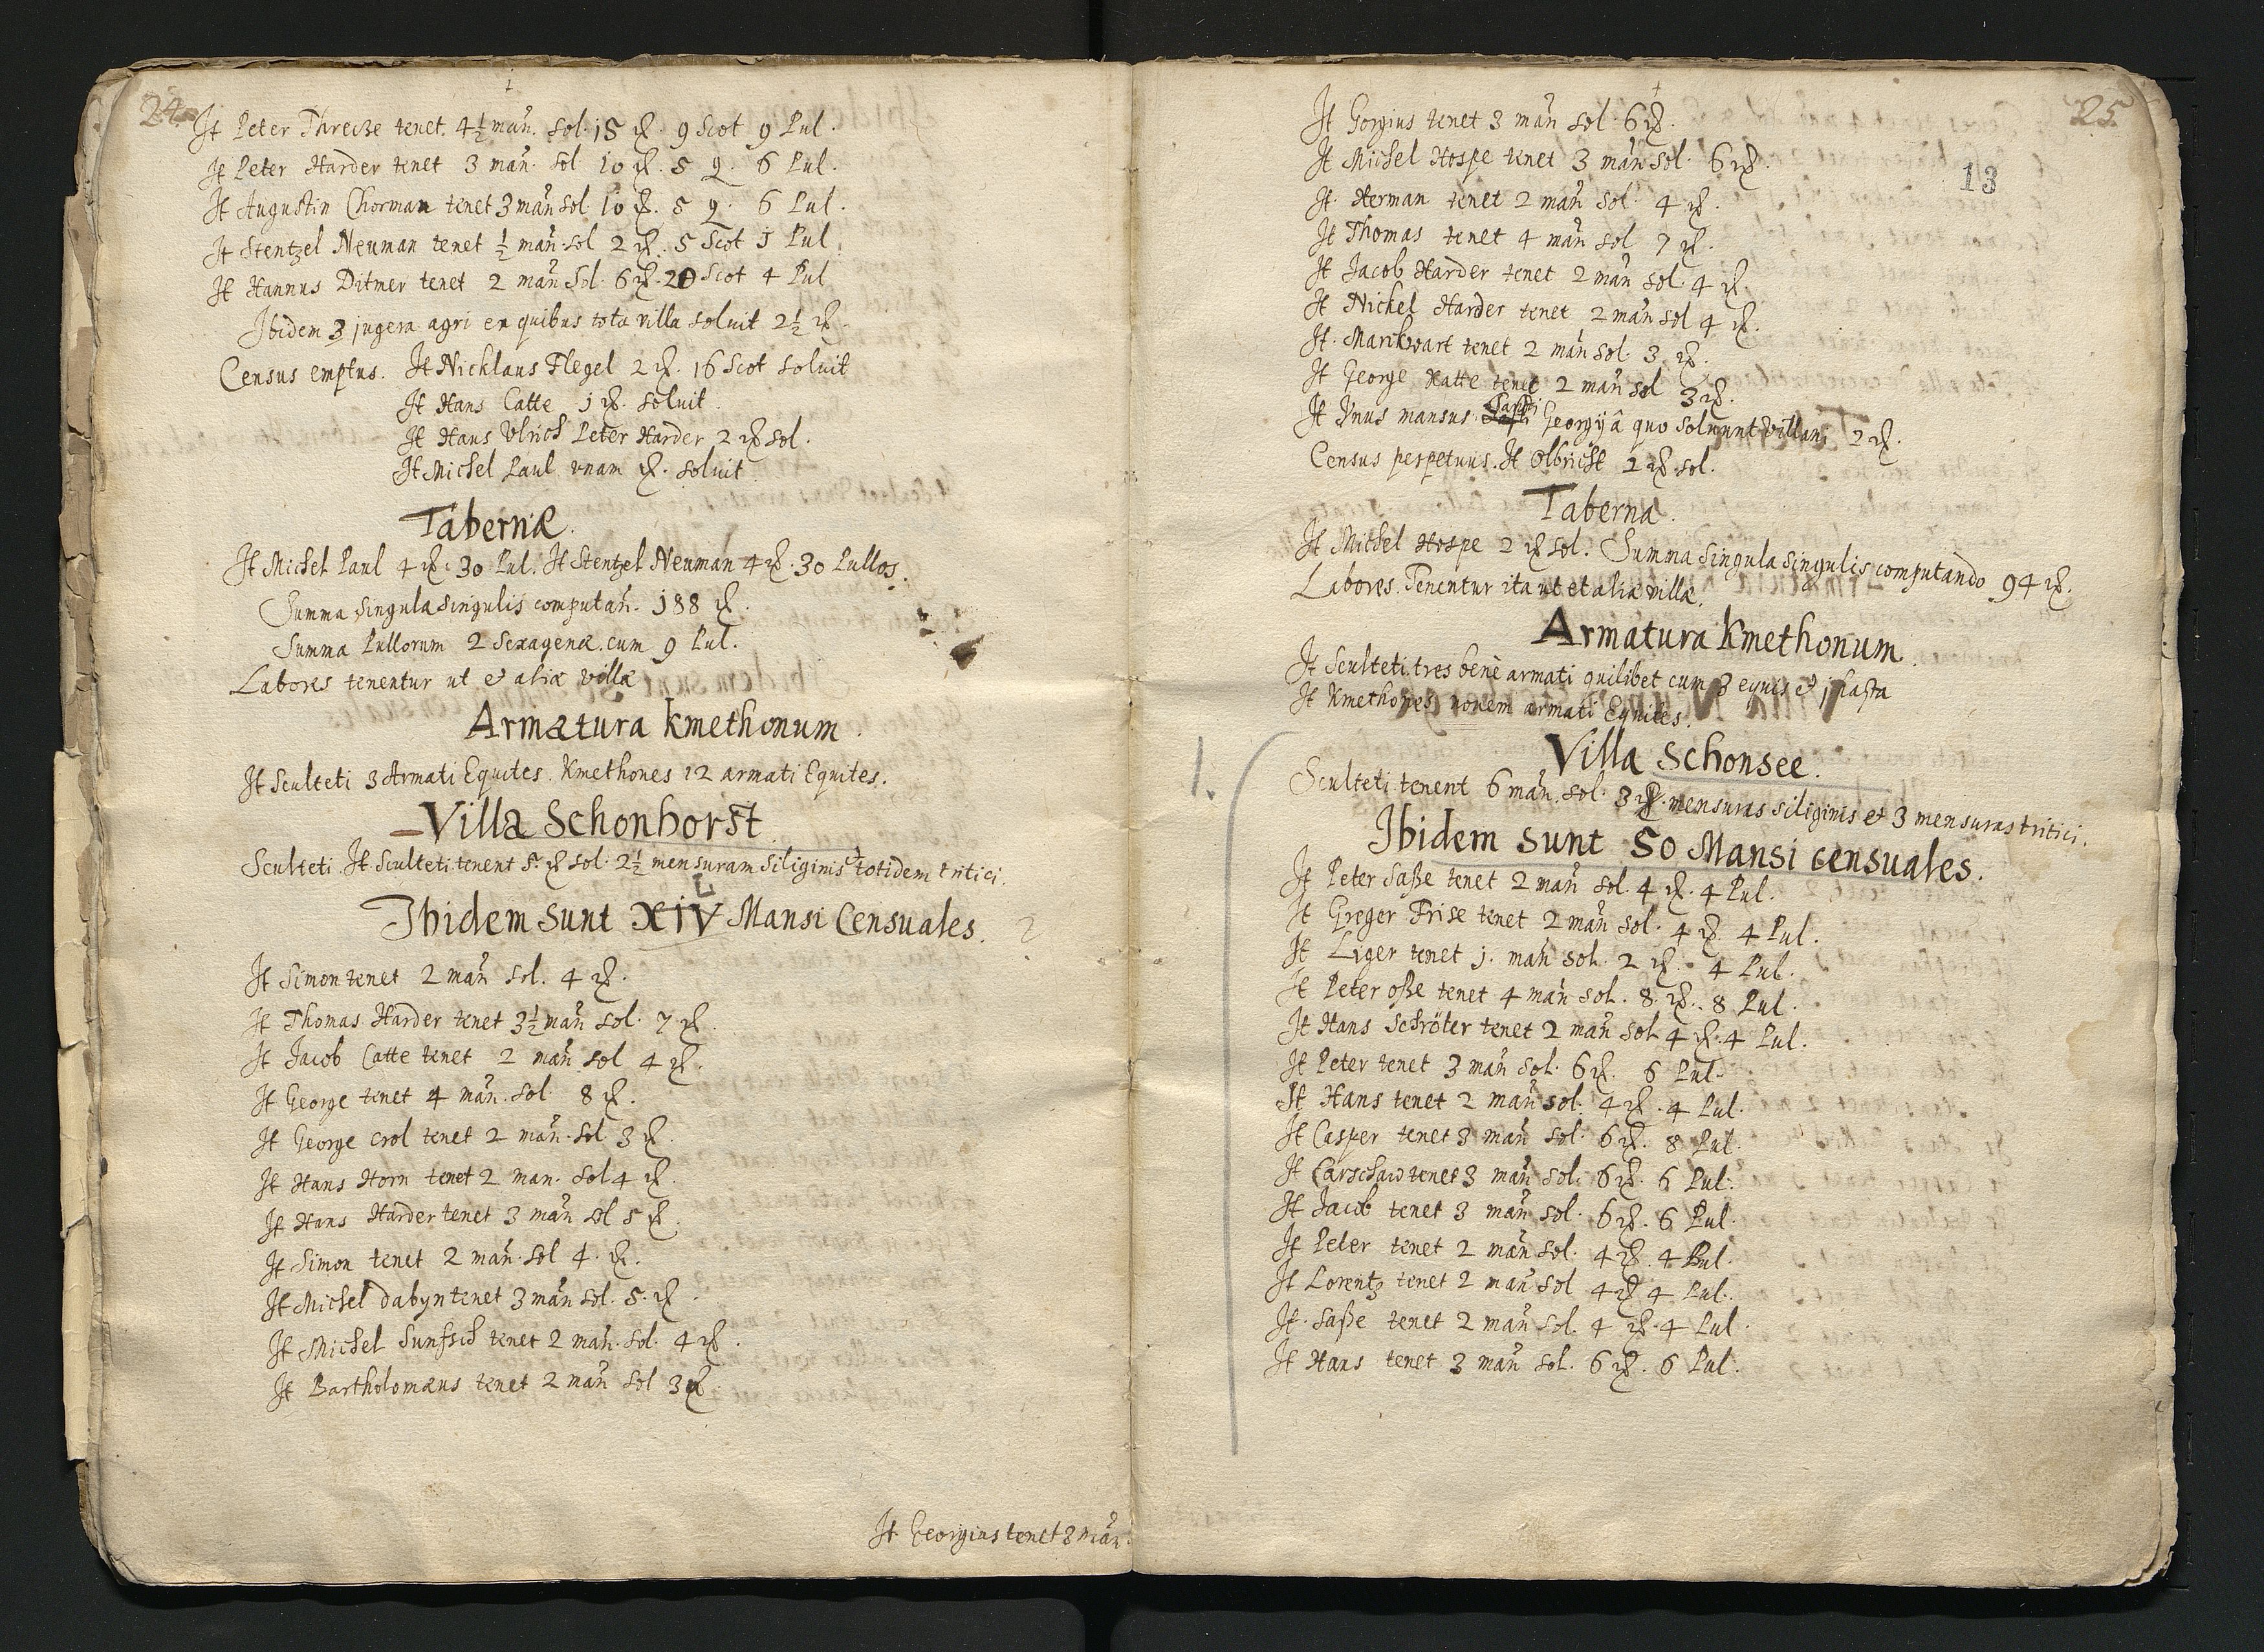 24.
It Peter Threcze tenet. 4½ mañ. sol. 15 ℞. 9 Scot 9 Pul.
It Peter Harder tenet 3 mañ. sol 10 ℞. 5 q. 6 Pul.
It Augustin Chorman tenet 3 mañ sol. 10 ℞. 5 q. 6 Pul.
It Stentzel Neuman tenet ½ mañ. sol 2 ℞. 5 Scot j Pul.
It Hannus Ditmer tenet 2 mañ Sol. 6 ℞. 20 Scot 4 Pul
Ibidem 3 jugera agri ex quibus tota villa soluit 2½ ℞.
Census emptus. It Nicklaus Flegel 2 ℞. 16 Scot soluit
It Hans Catte j ℞. soluit.
It Hans Vlrich Peter Harder 2 ℞ sol.
It Michel Paul vnam ℞. soluit.
Tabernæ.
It Michel Paul 4 ℞. 30 Pul. It Stentzel Neuman 4 ℞. 30 Pullos.
Summa singula singulis computañ. 188 ℞.
Summa Pullorum 2 Sexagenæ cum 9 Pul.
Labores tenentur ut et aliæ villæ
Armatura kmethonum.
It Sculteti 3 Armati Equites. Kmethones 12 armati Equites.
Villa Schonhorst
Sculteti It Sculteti tenent 5. ℞ sol. 2½ mensuram Siliginis totidem tritici.
L
Ibidem sunt XiV Mansi Censuales.
It Simon tenet 2 mañ sol. 4 ℞.
It Thomas Harder tenet 3½ mañ sol. 7 ℞.
It Jacob Catte tenet 2 mañ sol 4 ℞.
It George tenet 4 mañ. sol. 8 ℞.
It George crol tenet 2 mañ. sol 3 ℞.
It Hans Horn tenet 2 man. sol 4 ℞.
It Hans Harder tenet 3 mañ sol 5 ℞.
It Simon tenet 2 mañ. sol 4. ℞.
It Michel dabyn tenet 3 mañ sol. 5. ℞.
It Michel Sunfsich tenet 2 mañ. sol. 4 ℞.
It Bartholomæus tenet 2 mañ sol 3 ℞
It Georgius tenet 3 mañ.
25
13
It Gorgius tenet 3 mañ sol. 6 ℞.
It Michel Hospe tenet 3 mañ sol. 6 ℞.
It. Herman tenet 2 mañ sol. 4 ℞.
It Thomas tenet 4 mañ sol 7 ℞.
It Jacob Harder tenet 2 mañ sol. 4 ℞.
It Nickel Harder tenet 2 mañ sol 4 ℞.
It. Marckwart tenet 2 mañ sol. 3 ℞.
It George Katte tenet 2 mañ sol 3 ℞.
It Vnus mansus Sancti Georgij â quo soluunt Villani 2 ℞.
Census perpetuus. It Olbricht 2 ℞ sol.
Taberna.
It Michel Hospe 2 ℞ sol. Summa singula singulis computando 94 ℞.
Labores. Tenentur ita ut et aliæ villæ.
Armatura Kmethonum.
It Sculteti tres benè armati quilibet cum 3 equis et j hasta
It Kmethones novem armati Equites.
Villa Schonsee.
1.
Sculteti tenent 6 mañ. sol. 3 ℞. mensuras siliginis et 3 mensuras tritici.
Ibidem sunt 50 Mansi censuales.
It Peter Saße tenet 2 mañ sol. 4 ℞. 4 Pul.
It Greger Frise tenet 2 mañ sol. 4 ℞. 4 Pul.
It Liger tenet j. mañ sol. 2 ℞. 4 Pul.
It Peter oße tenet 4 mañ sol. 8. ℞. 8 Pul.
It Hans Schröter tenet 2 mañ sol. 4 ℞. 4 Pul.
It Peter tenet 3 mañ sol. 6 ℞. 6 Pul.
It Hans tenet 2 mañ sol. 4 ℞. 4 Pul.
It Casper tenet 3 mañ sol. 6 ℞. 8 Pul.
It Carschaw tenet 3 mañ sol. 6 ℞. 6 Pul.
It Jacob tenet 3 mañ sol. 6 ℞. 6 Pul.
It Peter tenet 2 mañ sol. 4 ℞. 4 Pul.
It Lorentz tenet 2 mañ sol 4 ℞ 4 Pul.
It. Saße tenet 2 mañ sol. 4 ℞. 4 Pul.
It Hans tenet 3 mañ sol. 6 ℞. 6 Pul.